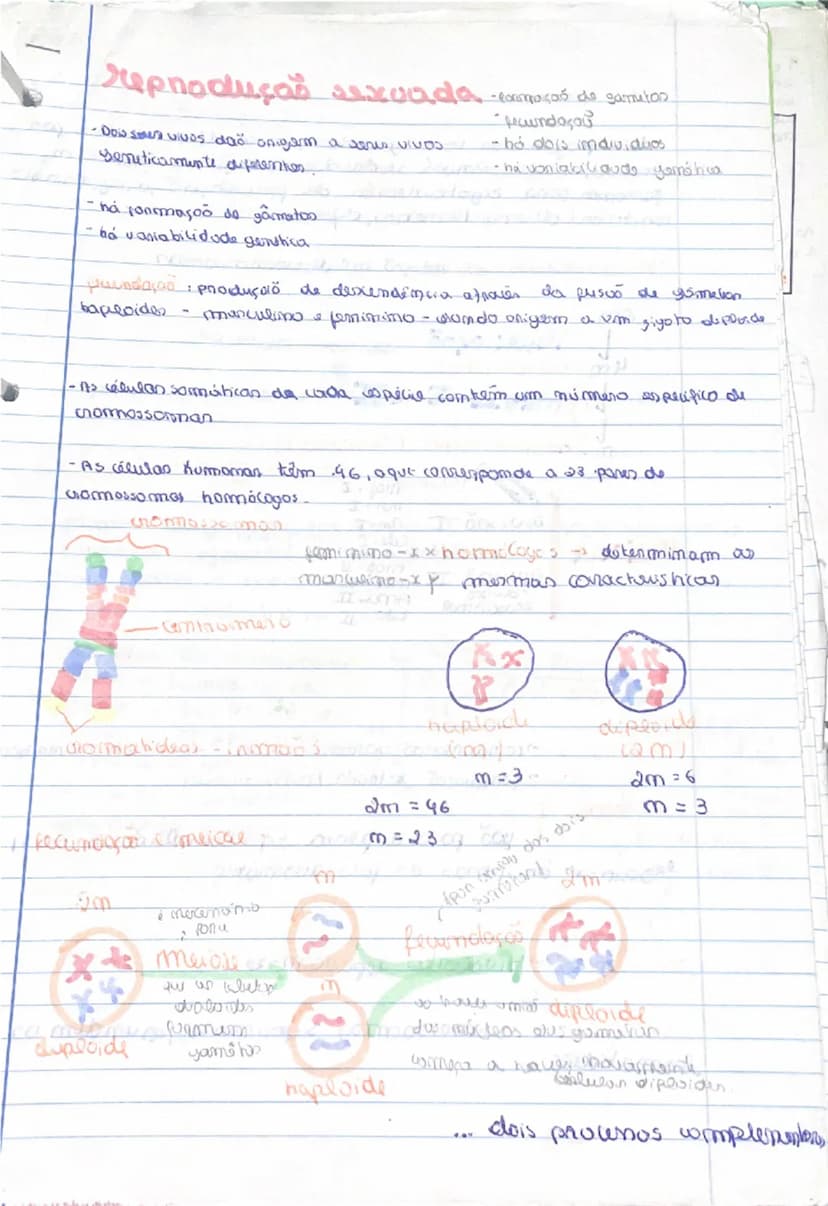 Reprodução sexuada
- formação de gametas
- fecundação
- há dois indivíduos
- há variabilidade genética
- Dois seres vivos dão origem a seres vivos
geneticamente diferentes.
- há formação de gâmetas
- há variabilidade genética
fecundação : produção de descendência através da fusão de gâmetas
haploides - masculino e feminino - dando origem a um zigoto diploide
- As células somáticas de cada espécie contêm um número específico de
cromossomas
- As células humanas têm 46, o que corresponde a 23 pares de
cromossomas homólogos.
cromossomas
feminino - x x homólogos → determinam as
masculino - x y mesmas características
centrómero
cromatídeos - irmãos
haploide
(n)
n = 3
diploide
(2n)
2n = 6
n = 3
2n = 46
n = 23
fecundação e meiose
2n
diploide
é necessário
para
meiose
que as células
diploides
formem
gametas
n
n
haploide
fecundação
2n
diploide
ao haver união
dos núcleos dos gametas
começa a haver novamente
células diploides.
... dois processos complementares